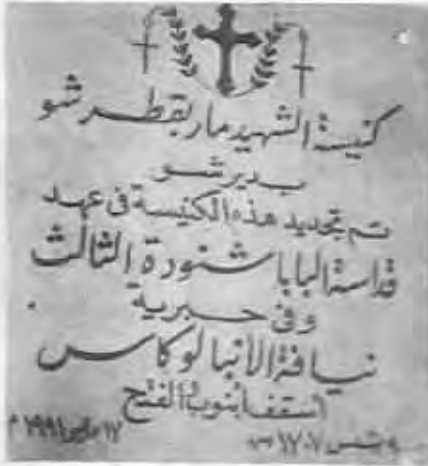 كنيسة الشهيد مار بقطر شو
بدير شو
تم تجديد هذه الكنيسة فى عهد
قداسة البابا شنودة الثالث
وفى حبرية
نيافة الانبا لوكاس
اسقف ابنوب والفتح
بشنس ١٧٠٧ ش ١٧ مايو ١٩٩١ م